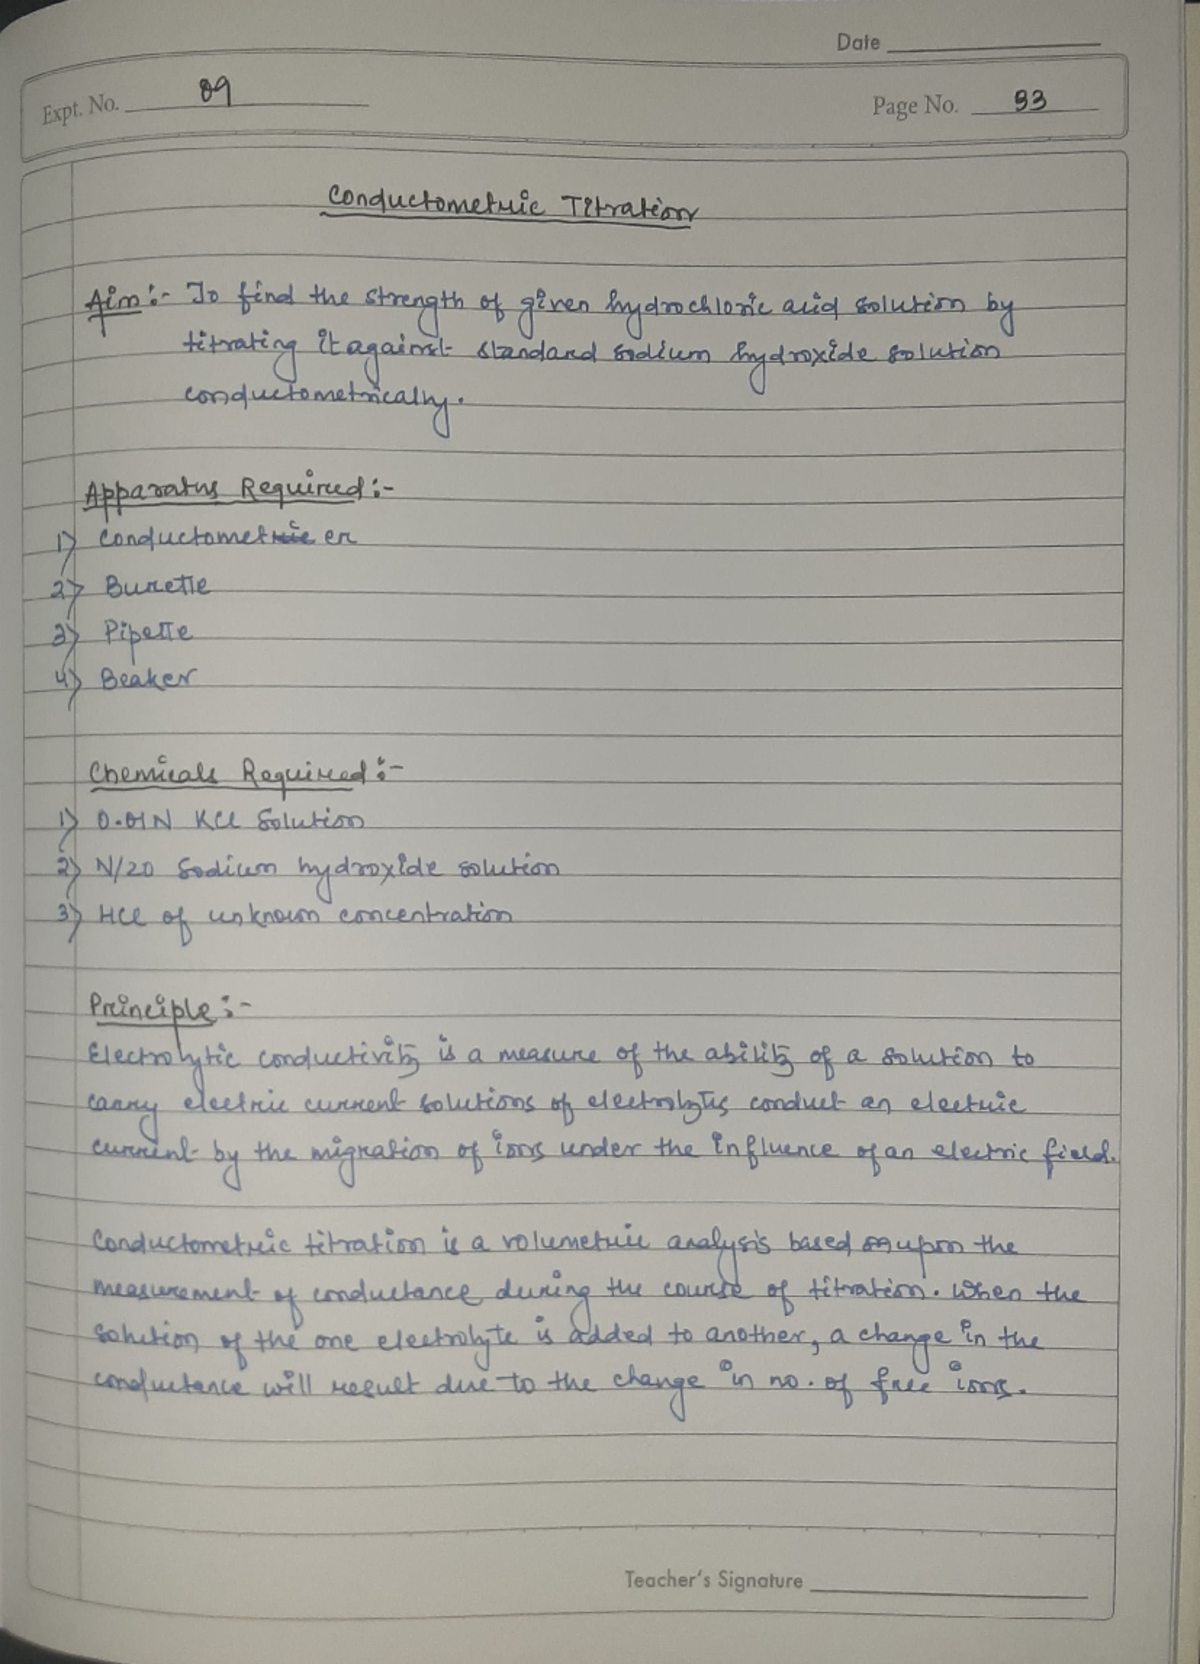 Date
Expt. No. 09
Page No. 33
Conductometric Titration
Aim:- To find the strength of given hydrochloric acid solution by
titrating it against standard sodium hydroxide solution
conductometrically.
Apparatus Required:-
1) Conductometer
2) Burette
3) Pipette
4) Beaker
Chemicals Required:-
1) 0.01N KCl Solution
2) N/20 Sodium hydroxide solution
3) HCl of unknown concentration
Principle:-
Electrolytic conductivity is a measure of the ability of a solution to
carry electric current solutions of electrolytes conduct an electric
current by the migration of ions under the influence of an electric field.
Conductometric titration is a volumetric analysis based upon the
measurement of conductance during the course of titration. When the
solution of the one electrolyte is added to another, a change in the
conductance will result due to the change in no. of free ions.
Teacher's Signature